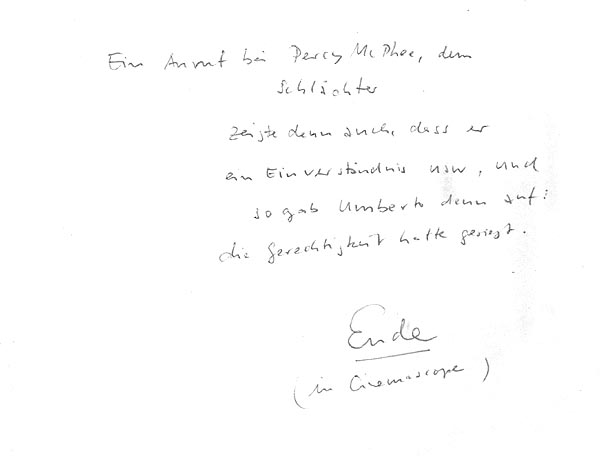 Ein Anruf bei Percy McPhee, dem
Schlächter
zeigte denn auch, dass er
ein Einverständnis usw, und
so gab Umberto denn auf:
die Gerechtigkeit hatte gesiegt.
Ende
(in Cinemascope)